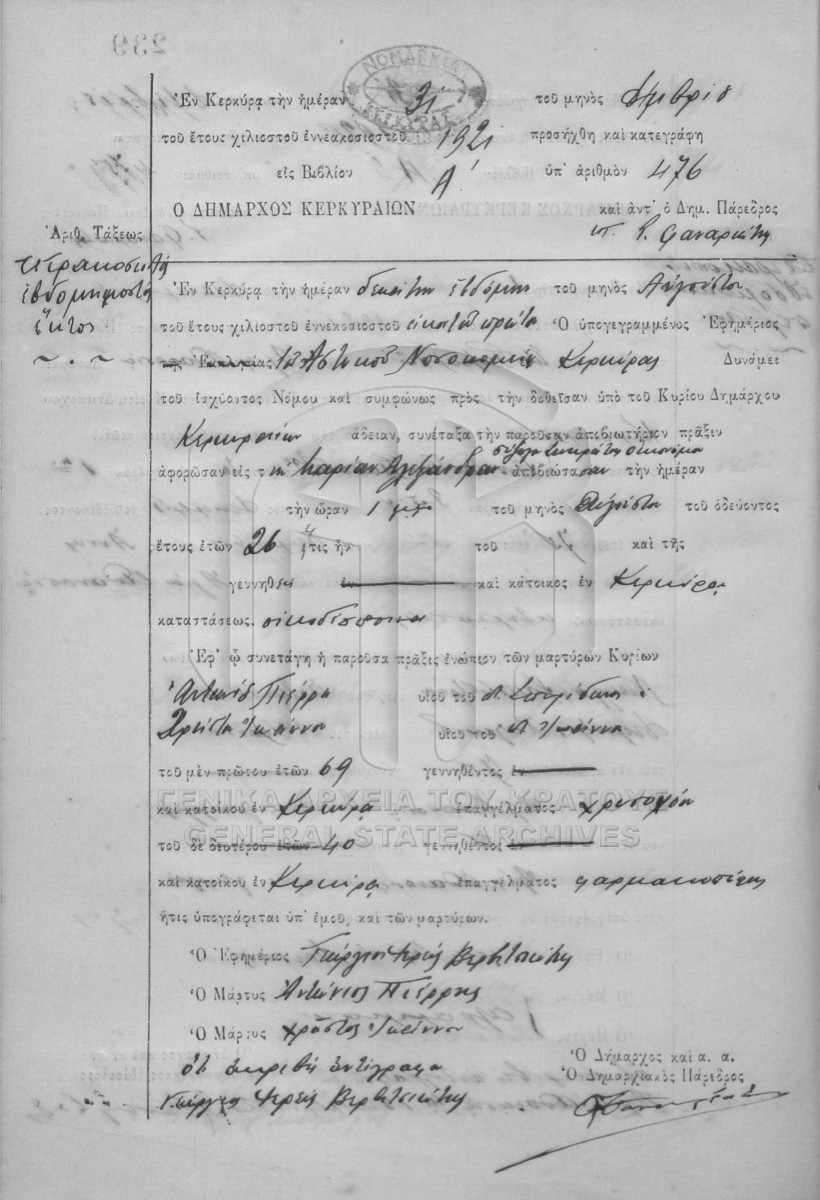 239
ΝΟΜΑΡΧΙΑ ΚΕΡΚΥΡΑΣ
Ἐν Κερκύρᾳ τὴν ἡμέραν 31 τοῦ μηνὸς
τοῦ ἔτους χιλιοστοῦ ἐννεακοσιοστοῦ 1921 προσήχθη καὶ κατεγράφη
εἰς Βιβλίον Α' ὑπ' ἀριθμὸν 476
Ο ΔΗΜΑΡΧΟΣ ΚΕΡΚΥΡΑΙΩΝ καὶ ἀντ' ὁ Δημ. Πάρεδρος
Ἀριθ. Τάξεως
τετρακοσιοστὴ
ἑβδομηκοστὴ
ἕκτος
Ἐν Κερκύρᾳ τὴν ἡμέραν δεκάτην ἑβδόμην τοῦ μηνὸς Αὐγούστου
τοῦ ἔτους χιλιοστοῦ ἐννεακοσιοστοῦ εἰκοστοῦ πρώτου Ὁ ὑπογεγραμμένος Ἐφημέριος
τῆς Ἐκκλησίας τοῦ Ἀστικοῦ Νοσοκομείου Κερκύρας Δυνάμει
τοῦ ἰσχύοντος Νόμου καὶ συμφώνως πρὸς τὴν δοθεῖσαν ὑπὸ τοῦ Κυρίου Δημάρχου
Κερκυραίων ἄδειαν, συνέταξα τὴν παροῦσαν ἀποβιωτήριον πρᾶξιν
σύζυγον Σωκράτη Οἰκονόμου
ἀφορῶσαν εἰς τὴν Μαρίαν Ἀλεξάνδραν ἀποβιώσασαν τὴν ἡμέραν
τὴν ὥραν 1 τοῦ μηνὸς Αὐγούστου τοῦ ὁδεύοντος
ἔτους ἐτῶν 26 ἥτις ἦν τοῦ καὶ τῆς
γεννηθεῖσα ἐν καὶ κάτοικος ἐν Κερκύρᾳ
καταστάσεως. οἰκοδέσποινα
Ἐφ' ᾧ συνετάγη ἡ παροῦσα πρᾶξις ἐνώπιον τῶν μαρτύρων Κυρίων
Ἀντωνίου Πιέρρη υἱοῦ τοῦ Σπυρίδωνος
Χρήστου Ἰωάννου υἱοῦ τοῦ Ἰωάννου
τοῦ μὲν πρώτου ἐτῶν 69 γεννηθέντος ἐν
καὶ κατοίκου ἐν Κερκύρᾳ ἐπαγγέλματος χρυσοχόου
τοῦ δὲ δευτέρου ἐτῶν 40 γεννηθέντος ἐν
καὶ κατοίκου ἐν Κερκύρᾳ ἐπαγγέλματος φαρμακοποιός
ἥτις ὑπογράφεται ὑπ' ἐμοῦ, καὶ τῶν μαρτύρων.
Ὁ Ἐφημέριος Γεώργιος Ἱερεὺς Βερβιτσιώτης
Ὁ Μάρτυς Ἀντώνιος Πιέρρης
Ὁ Μάρτυς Χρῆστος Ἰωάννου
Ὅτι ἀκριβὲς ἀντίγραφον
Γεώργιος Ἱερεὺς Βερβιτσιώτης
Ὁ Δήμαρχος καὶ α. α.
Ὁ Δημαρχιακὸς Πάρεδρος
ΓΕΝΙΚΑ ΑΡΧΕΙΑ ΤΟΥ ΚΡΑΤΟΥΣ
GENERAL STATE ARCHIVES